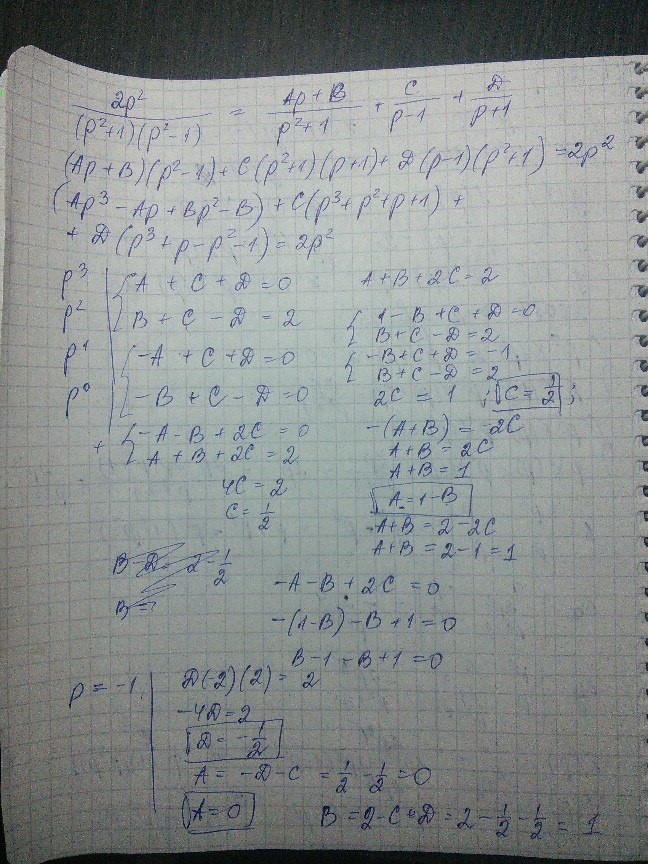 2p² / (p²+1)(p²-1) = Ap+B / p²+1 + C / p-1 + D / p+1
(Ap+B)(p²-1)+C(p²+1)(p+1)+D(p-1)(p²+1)=2p²
(Ap³-Ap+Bp²-B)+C(p³+p²+p+1)+
+D(p³+p-p²-1)=2p²
p³ | { A+C+D=0
p² | B+C-D=2
p¹ | { -A+C+D=0
p⁰ | -B+C-D=0
+ { -A-B+2C=0
A+B+2C=2
4C=2
C=1/2
A+B+2C=2
{ 1-B+C+D=0
B+C-D=2
{ -B+C+D=-1
B+C-D=2
2C=1; C=1/2;
-(A+B)=-2C
A+B=2C
A+B=1
A=1-B
A+B=2-2C
A+B=2-1=1
-A-B+2C=0
-(1-B)-B+1=0
B-1-B+1=0
p=-1 | D(-2)(2)=2
-4D=2
D=-1/2
A=-D-C=1/2-1/2=0
A=0
B=2-C+D=2-1/2-1/2=1